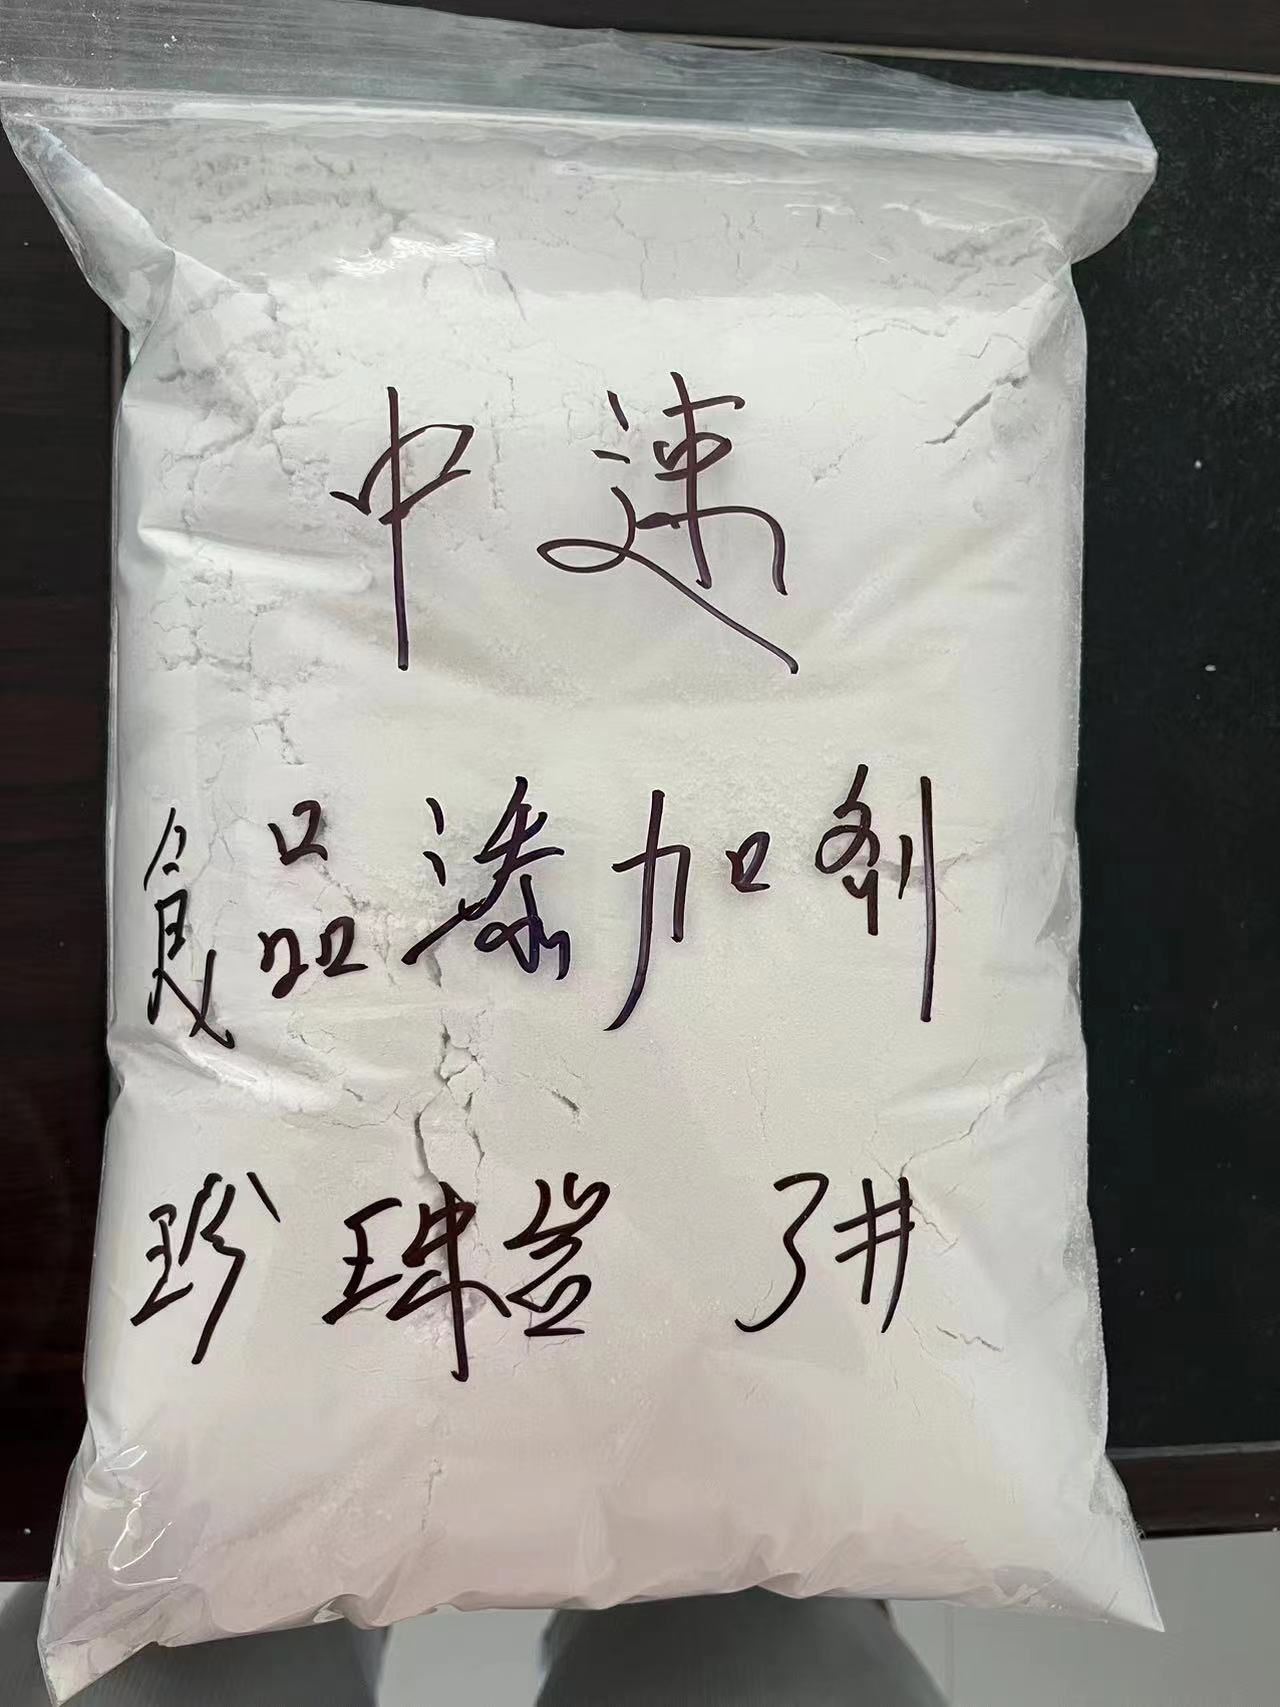 中速
食品添加剂
珍珠岩 3#